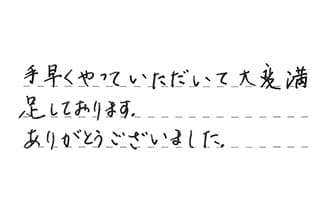 手早くやっていただいて大変満
足しております。
ありがとうございました。